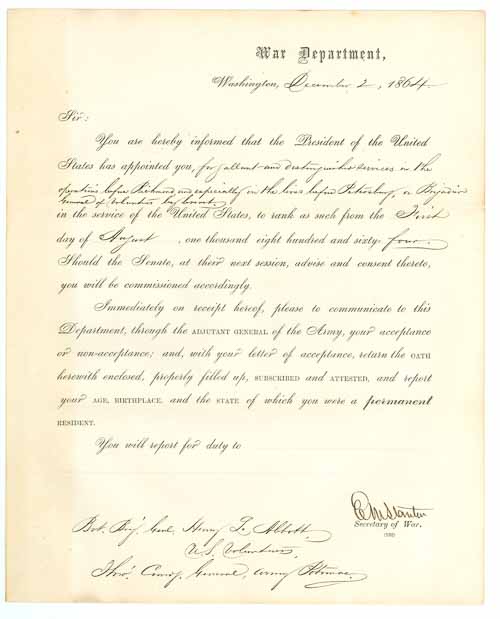 War Department,
Washington, December 2, 1864.
Sir:
You are hereby informed that the President of the United
States has appointed you, for gallant and distinguished services in the
operations before Richmond and especially in the lines before Petersburg, a Brigadier
General of Volunteers by brevet,
in the service of the United States, to rank as such from the First
day of August, one thousand eight hundred and sixty-four.
Should the Senate, at their next session, advise and consent thereto,
you will be commissioned accordingly.
Immediately on receipt hereof, please to communicate to this
Department, through the ADJUTANT GENERAL of the Army, your acceptance
or non-acceptance; and, with your letter of acceptance, return the OATH
herewith enclosed, properly filled up, SUBSCRIBED and ATTESTED, and report
your AGE, BIRTHPLACE, and the STATE of which you were a permanent
RESIDENT.
You will report for duty to
Edwin M Stanton
Secretary of War.
Bvt. Brig. Genl Henry L. Abbott,
U.S. Volunteers,
Thro' Comdg. General, Army Potomac.